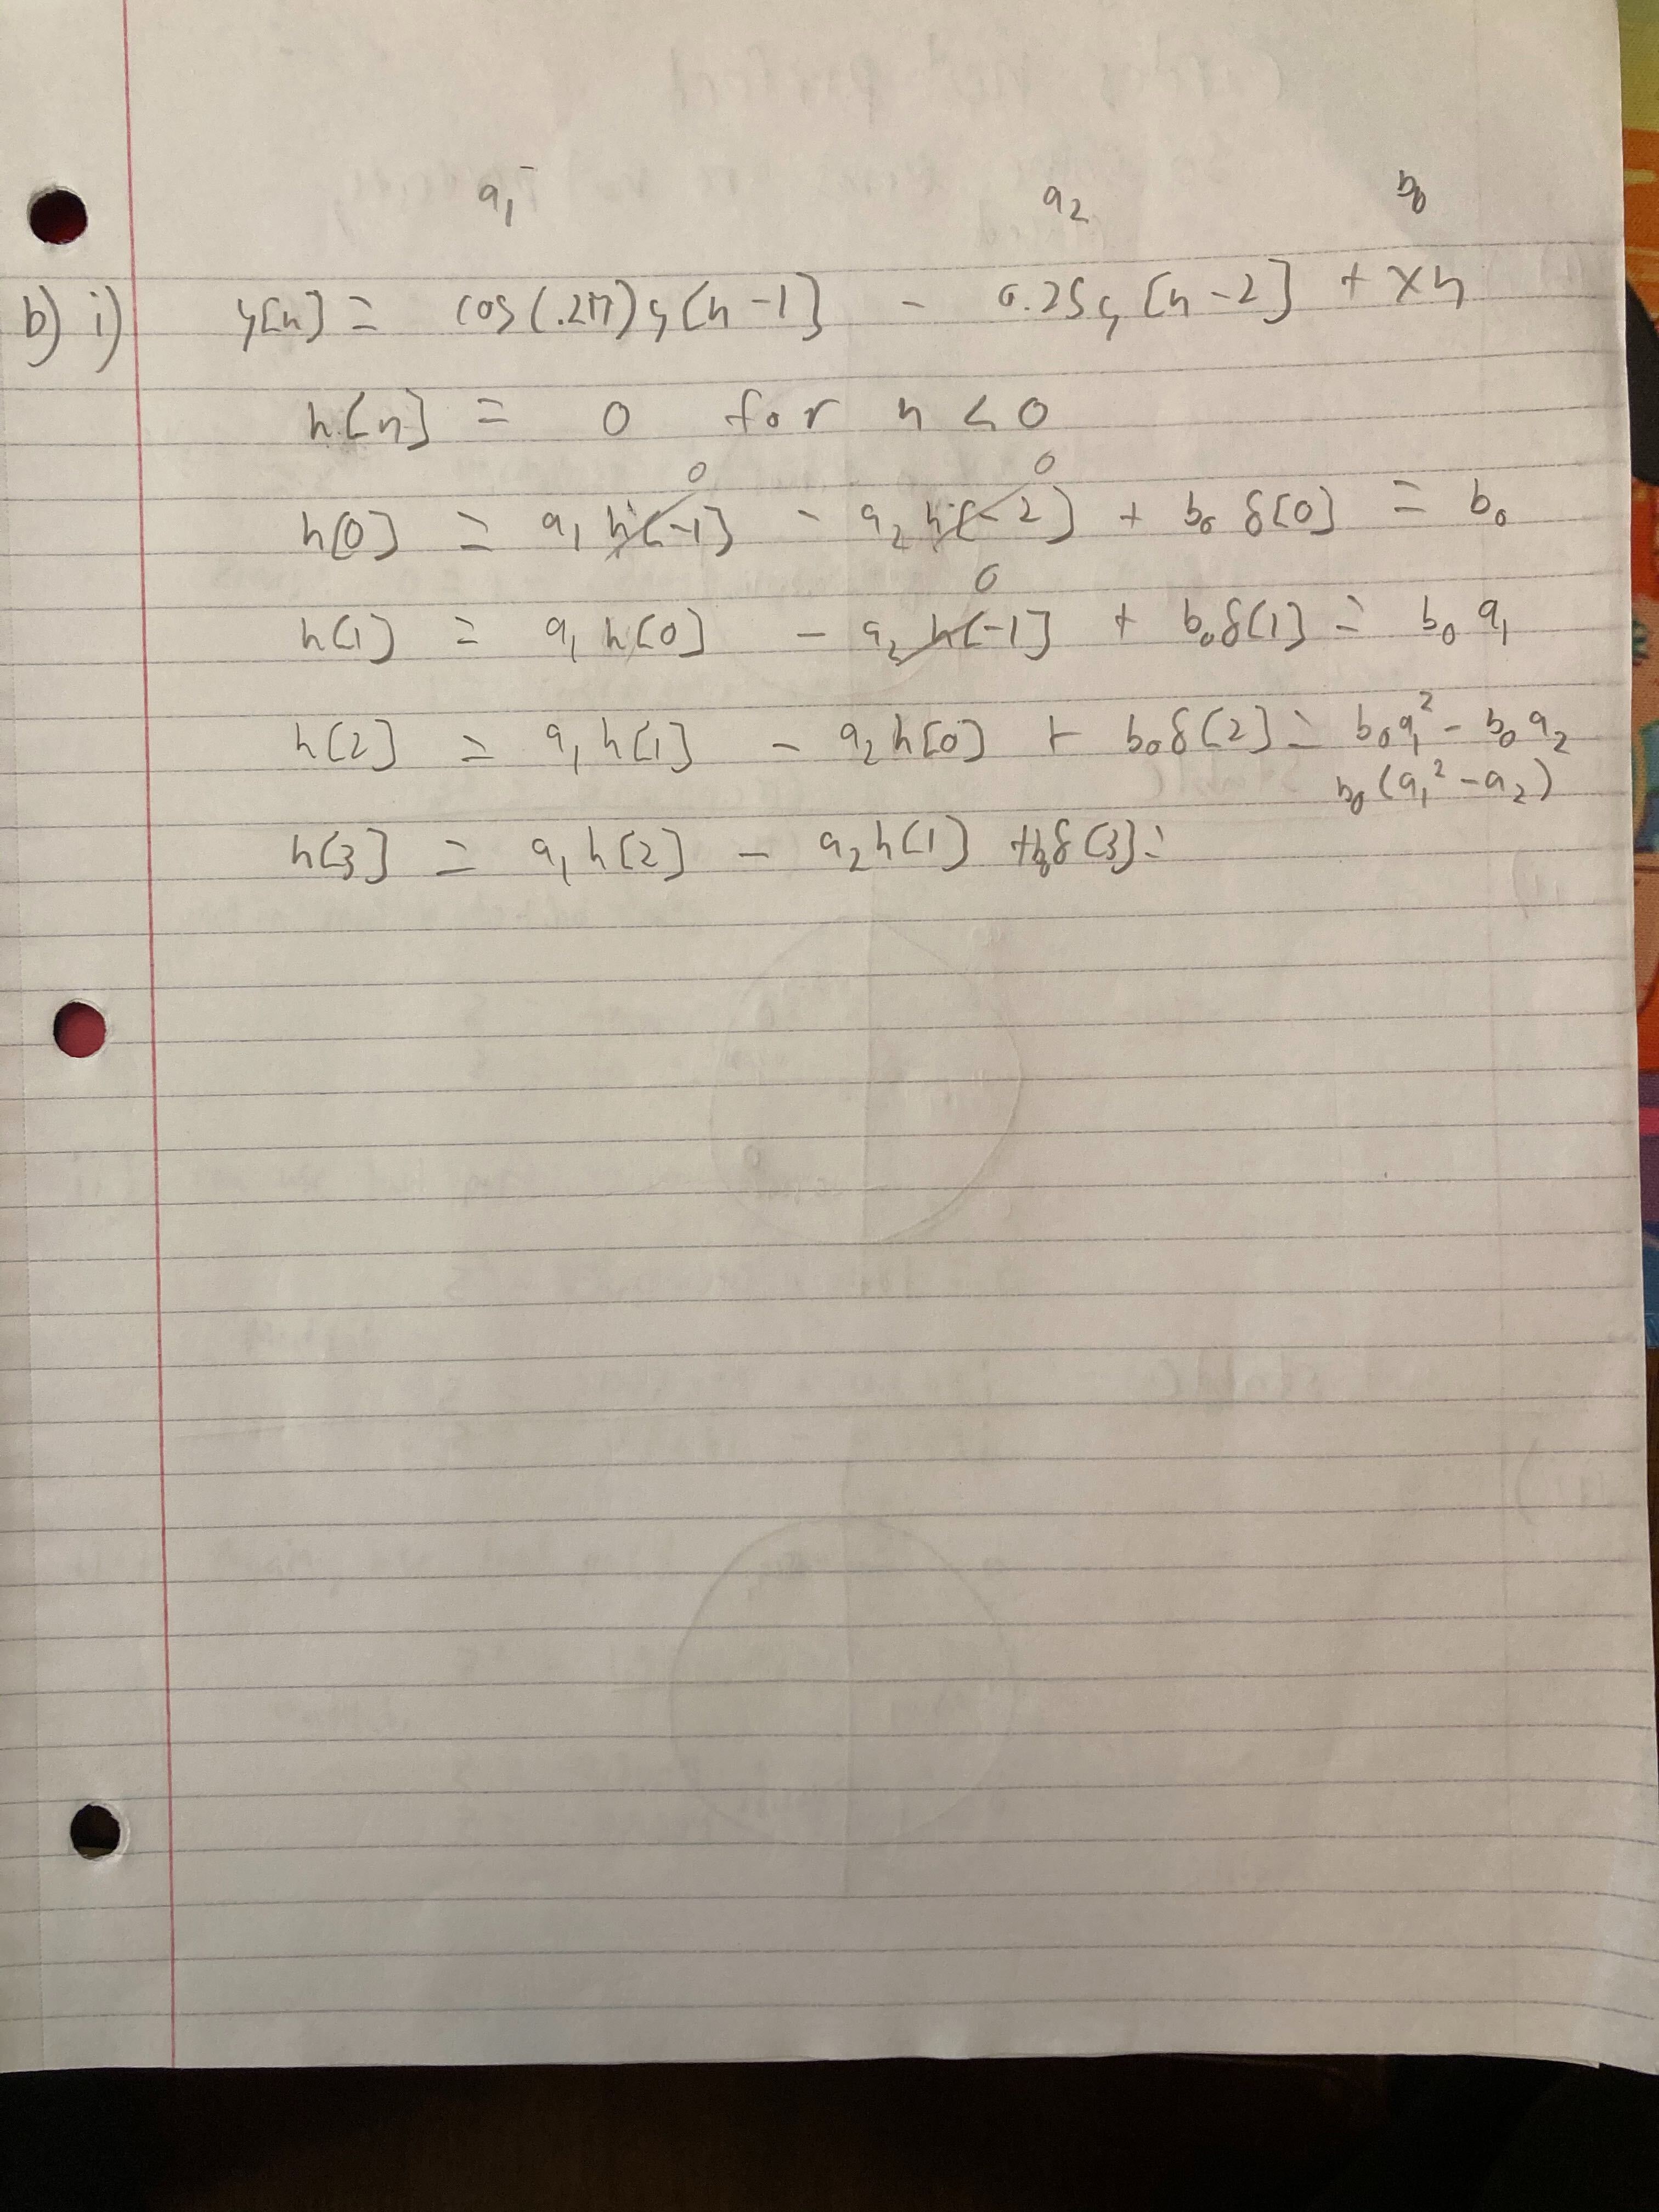 a₁ a₂ b₀
b) i) y[n] = cos(.2π)y[n-1] - 0.25y[n-2] + xn
h[n] = 0 for n < 0
0 0
h[0] = a₁h[-1] - a₂h[-2] + b₀δ[0] = b₀
0
h[1] = a₁h[0] - a₂h[-1] + b₀δ[1] = b₀a₁
h[2] = a₁h[1] - a₂h[0] + b₀δ[2] = b₀a₁² - b₀a₂
b₀(a₁² - a₂)
h[3] = a₁h[2] - a₂h[1] + b₀δ[3] =